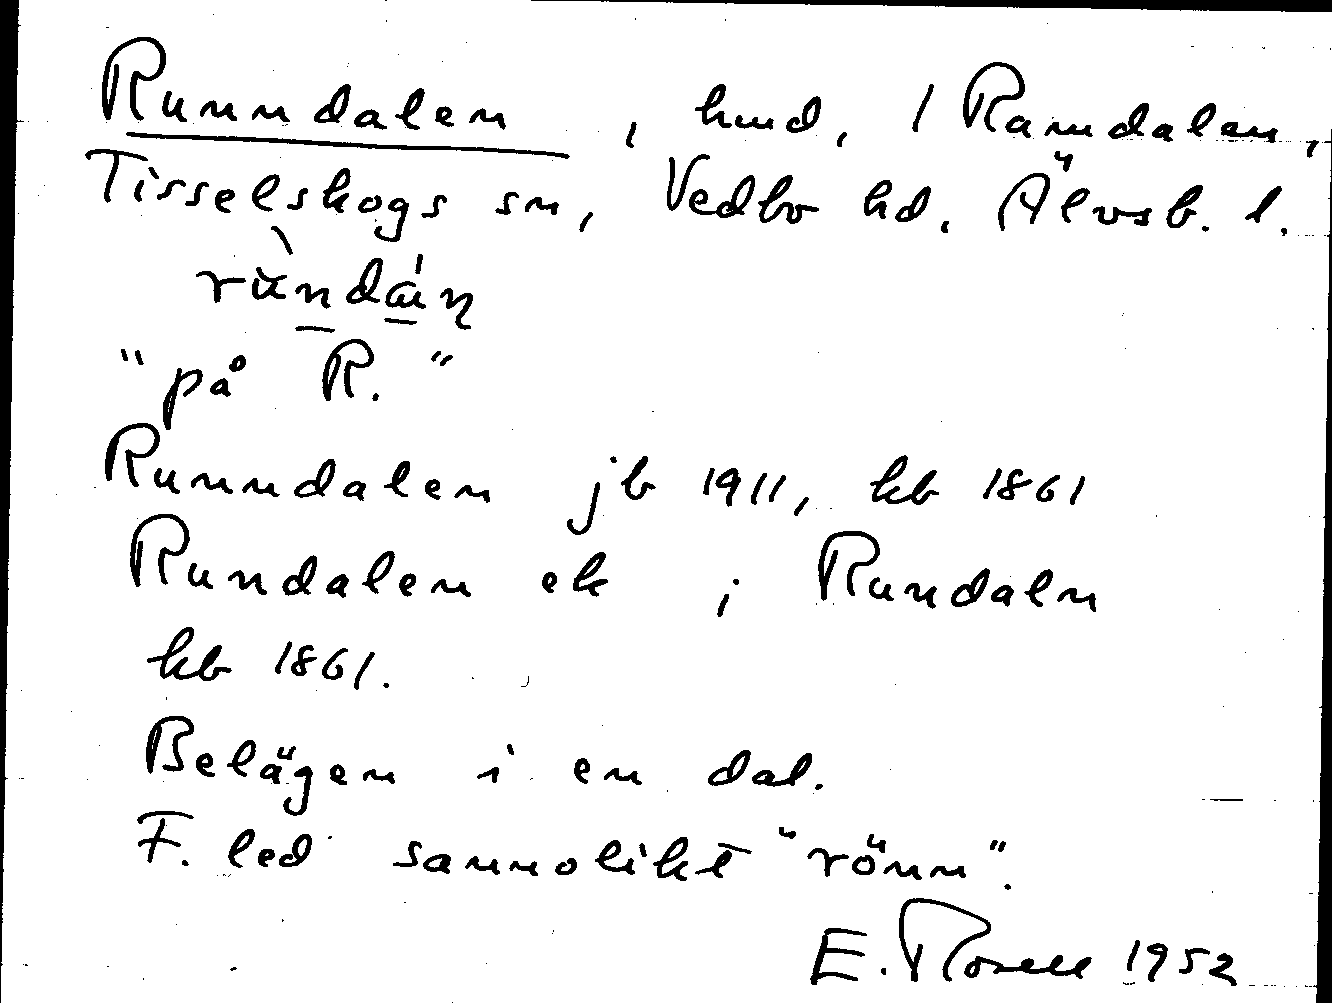 Runndalen, hmd, / Ramdalen,
Tisselskogs sn, Vedbo hd. Älvsb. l.
"på R."
Runndalen jb 1911, kb 1861
Rundalen ek ; Rundaln
kb 1861.
Belägen i en dal.
F. led sannolikt "rönn".
E. Rosell 1952